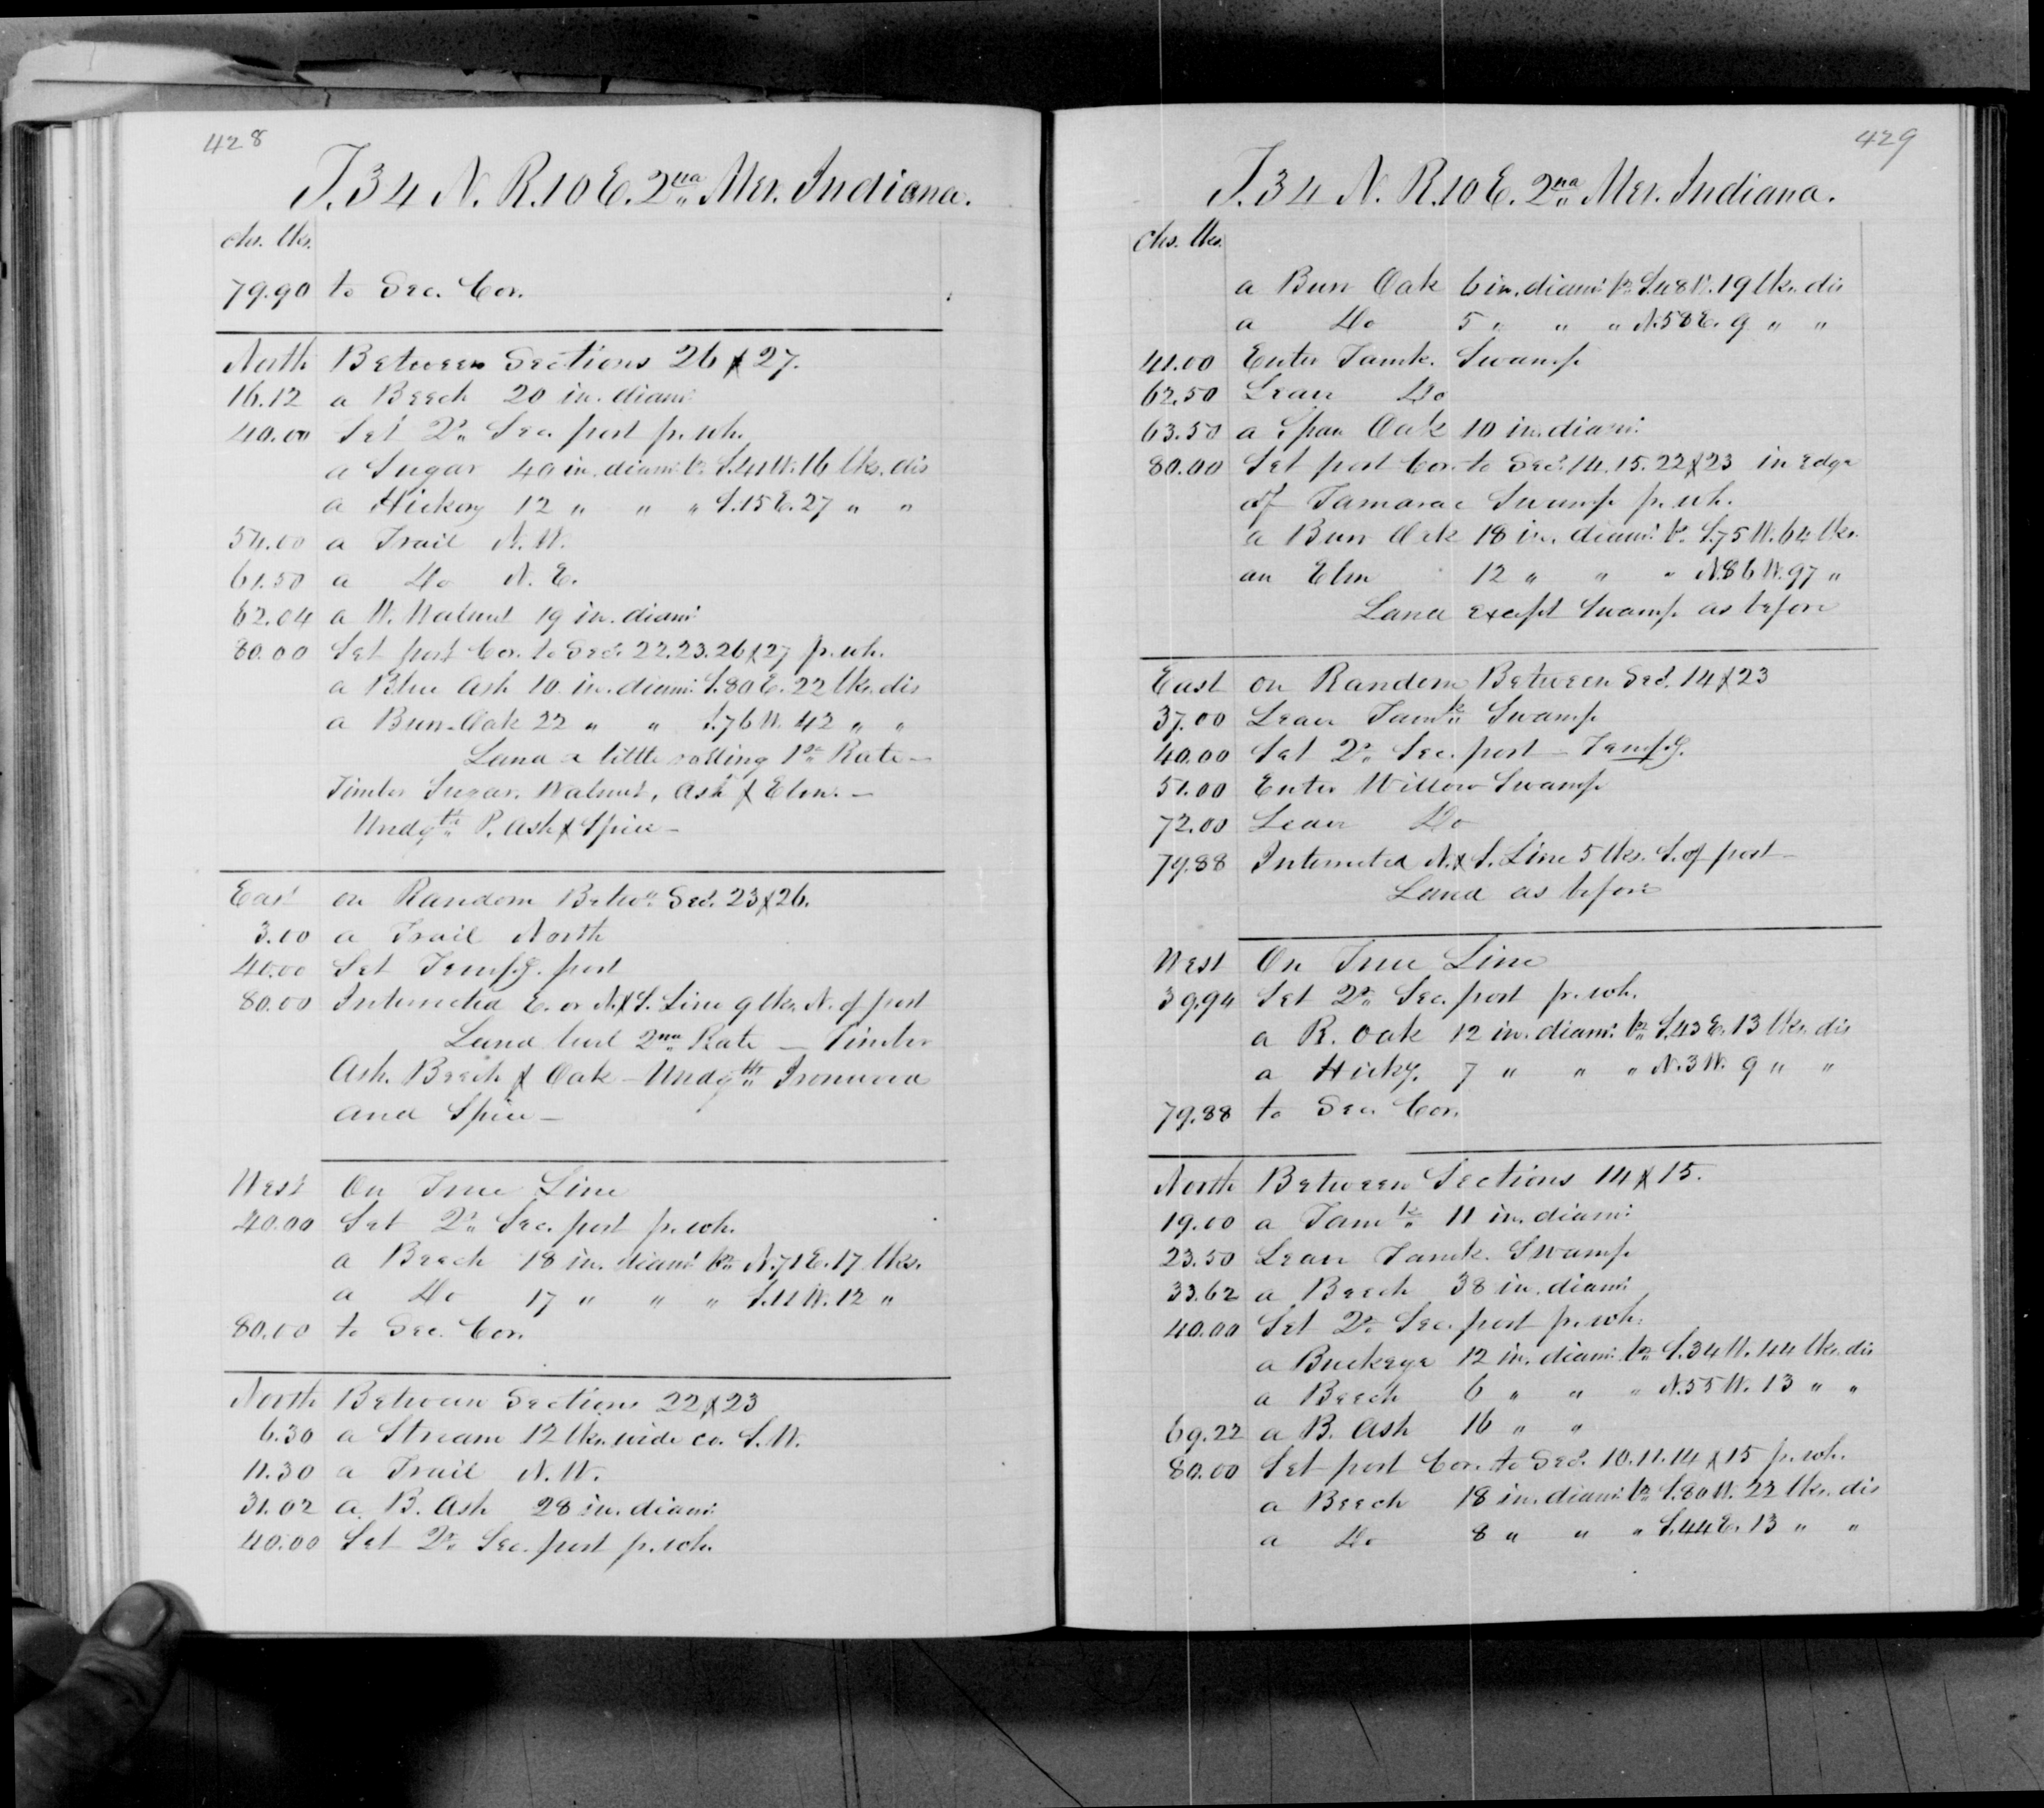 428
T. 34 N. R. 10 E. 2nd Mer. Indiana.
chs. lks.
79.90 to Sec. Cor.
North Between Sections 26 & 27.
16.12 a Beech 20 in. diam:
40.00 Set Qr. Sec. post pr. wh.
a Sugar 40 in. diam: br. S. 41 W. 16 lks. dis
a Hickory 12 " " " S. 15 E. 27 " "
54.00 a Trail N. W.
61.50 a Do N. E.
62.04 a W. Walnut 19 in. diam:
80.00 Set post Cor. to Secs. 22. 23. 26 & 27 pr. wh.
a Blue Ash 10 in. diam: S. 80 E. 22 lks. dis
a Burr Oak 22 " " S. 76 W. 42 " "
Land a little rolling 1st Rate —
Timber Sugar, Walnut, Ash & Elm. —
Undgth P. Ash & Spice —
East on Random Betwn Secs. 23 & 26.
3.00 a Trail North
40.00 Set Tempy. post
80.00 Intersected E. or N. & S. Line 9 lks. N. of post
Land level 2nd Rate — Timber
Ash, Beech & Oak — Undgth Ironwood
and Spice —
West On True Line
40.00 Set Qr. Sec. post pr. wh.
a Beech 18 in. diam: br. N. 71 E. 17 lks.
a Do 17 " " " S. 11 W. 12 "
80.00 to Sec. Cor.
North Between Sections 22 & 23
6.30 a Stream 12 lks. wide co. S. W.
11.30 a Trail N. W.
31.02 a B. Ash 28 in. diam:
40.00 Set Qr. Sec. post pr. wh.
429
T. 34 N. R. 10 E. 2nd Mer. Indiana.
chs. lks.
a Burr Oak 6 in. diam: br. S. 48 W. 19 lks. dis
a Do 5 " " " N. 58 E. 9 " "
41.00 Enter Tamk. Swamp
62.50 Leave Do
63.50 a Span Oak 10 in. diam:
80.00 Set post Cor. to Secs. 14. 15. 22 & 23 in Edge
of Tamarac Swamp pr. wh.
a Burr Oak 18 in. diam: br. S. 75 W. 64 lks.
an Elm 12 " " " N. 86 W. 97 "
Land except Swamp as before
East on Random Between Secs. 14 & 23
37.00 Leave Tamk Swamp
40.00 Set Qr. Sec. post — Tempy.
51.00 Enter Willow Swamp
72.00 Leave Do
79.88 Intersected N. & S. Line 5 lks. S. of post —
Land as before
West On True Line
39.94 Set Qr. Sec. post pr. wh.
a R. Oak 12 in. diam: br. S. 43 E. 13 lks. dis
a Hicky. 7 " " " N. 3 W. 9 " "
79.88 to Sec. Cor.
North Between Sections 14 & 15.
19.00 a Tamk 11 in. diam:
23.50 Leave Tamk. Swamp
33.62 a Beech 38 in. diam:
40.00 Set Qr. Sec. post pr. wh.
a Buckeye 12 in. diam: br. S. 34 W. 44 lks. dis
a Beech 6 " " " N. 55 W. 13 " "
69.22 a B. Ash 16 " "
80.00 Set post Cor. to Secs. 10. 11. 14 & 15 pr. wh.
a Beech 18 in. diam: br. S. 80 W. 22 lks. dis
a Do 8 " " " S. 44 E. 13 " "